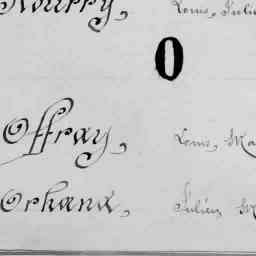 Nourry, Louis, Julie
O
Offray, Louis, Ma
Orhand, Julien, M